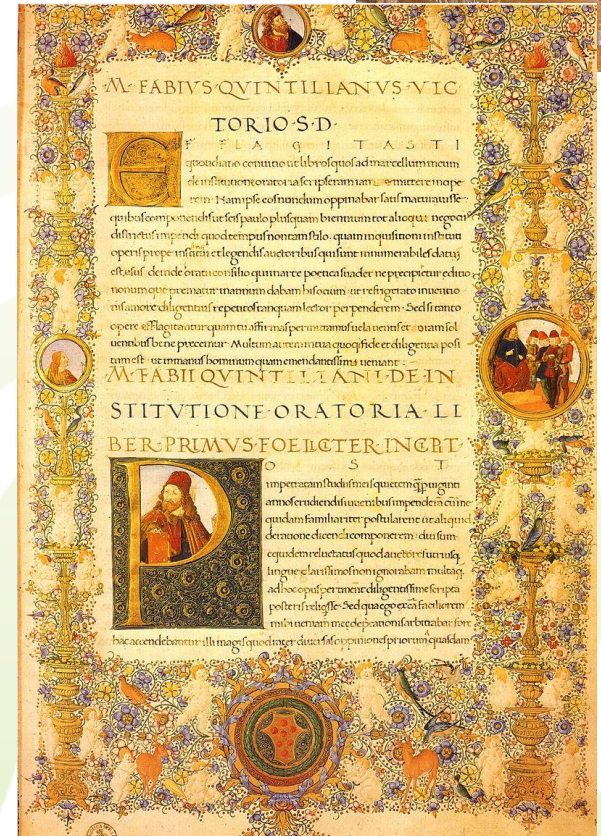 M·FABIVS·QVINTILIANVS·VIC
TORIO·S·D·
E F F L A G I T A S T I
quotidiano conuitio ut libros quos ad marcellum meum
de institutione oratoria scripseram iam emittere incipe
rem · Nam ipse eos nondum oppinabar satis maturuisse
quibus componendis ut scis paulo plusquam biennium tot alioqui negociis
districtus impendi quod tempus non tam stilo · quam inquisitioni instituti
operis prope et legendis auctoribus qui sunt innumerabiles datum
est usus deinde consilio qui in arte poetica suadet ne precipitetur editio
nonumque prematur in annum dabam his ocium · ut refrigerato inuentio
nis amore diligentius repetitos tanquam lector perpenderem · Sed si tanto
opere efflagitantur quantum tu affirmas permittamus uela uentis et oram sol
uentibus bene precemur · Multum autem in tua quoque fide et diligentia posi
tum est · ut in manus hominum quam emendatissimi ueniant :
M·FABII QVINTILIANI·DE·IN
STITVTIONE·ORATORIA·LI
BER·PRIMVS·FOELICITER·INCIPT
P O S T
impetratam studiis meis quietem q̄ p uiginti
annos erudiendis iuuenibus impenderam cum me
quidam familiariter postularent ut aliquid
de ratione dicendi componerem · diu sum
equidem reluctatus quod auctores utriusq
lingue clarissimos non ignorabam multaq
ad hoc opus pertinent diligentissime scripta
posteris reliqsse · Sed qua ego causa faciliorem
mihi ueniam mee deprecationis arbitrabar fore
hac accendebantur illi magis quod inter diuersas oppiniones priorum quasdam